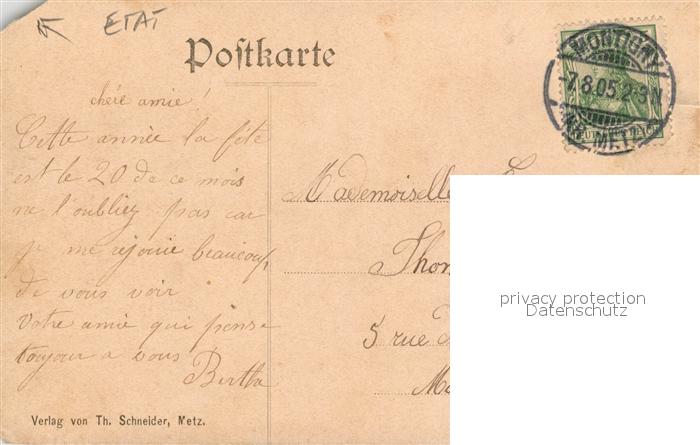 ETAT
Postkarte
MONTIGNY
7.8.05.2-3N
METZ
chère amie!
Cette année la fête
est le 20 de ce mois
ne l'oubliez pas car
je me rejouie beaucoup
de vous voir
Votre amie qui pense
toujour a vous
Bertha
Mademoiselle
Thom
5 rue
privacy protection
Datenschutz
Verlag von Th. Schneider, Metz.